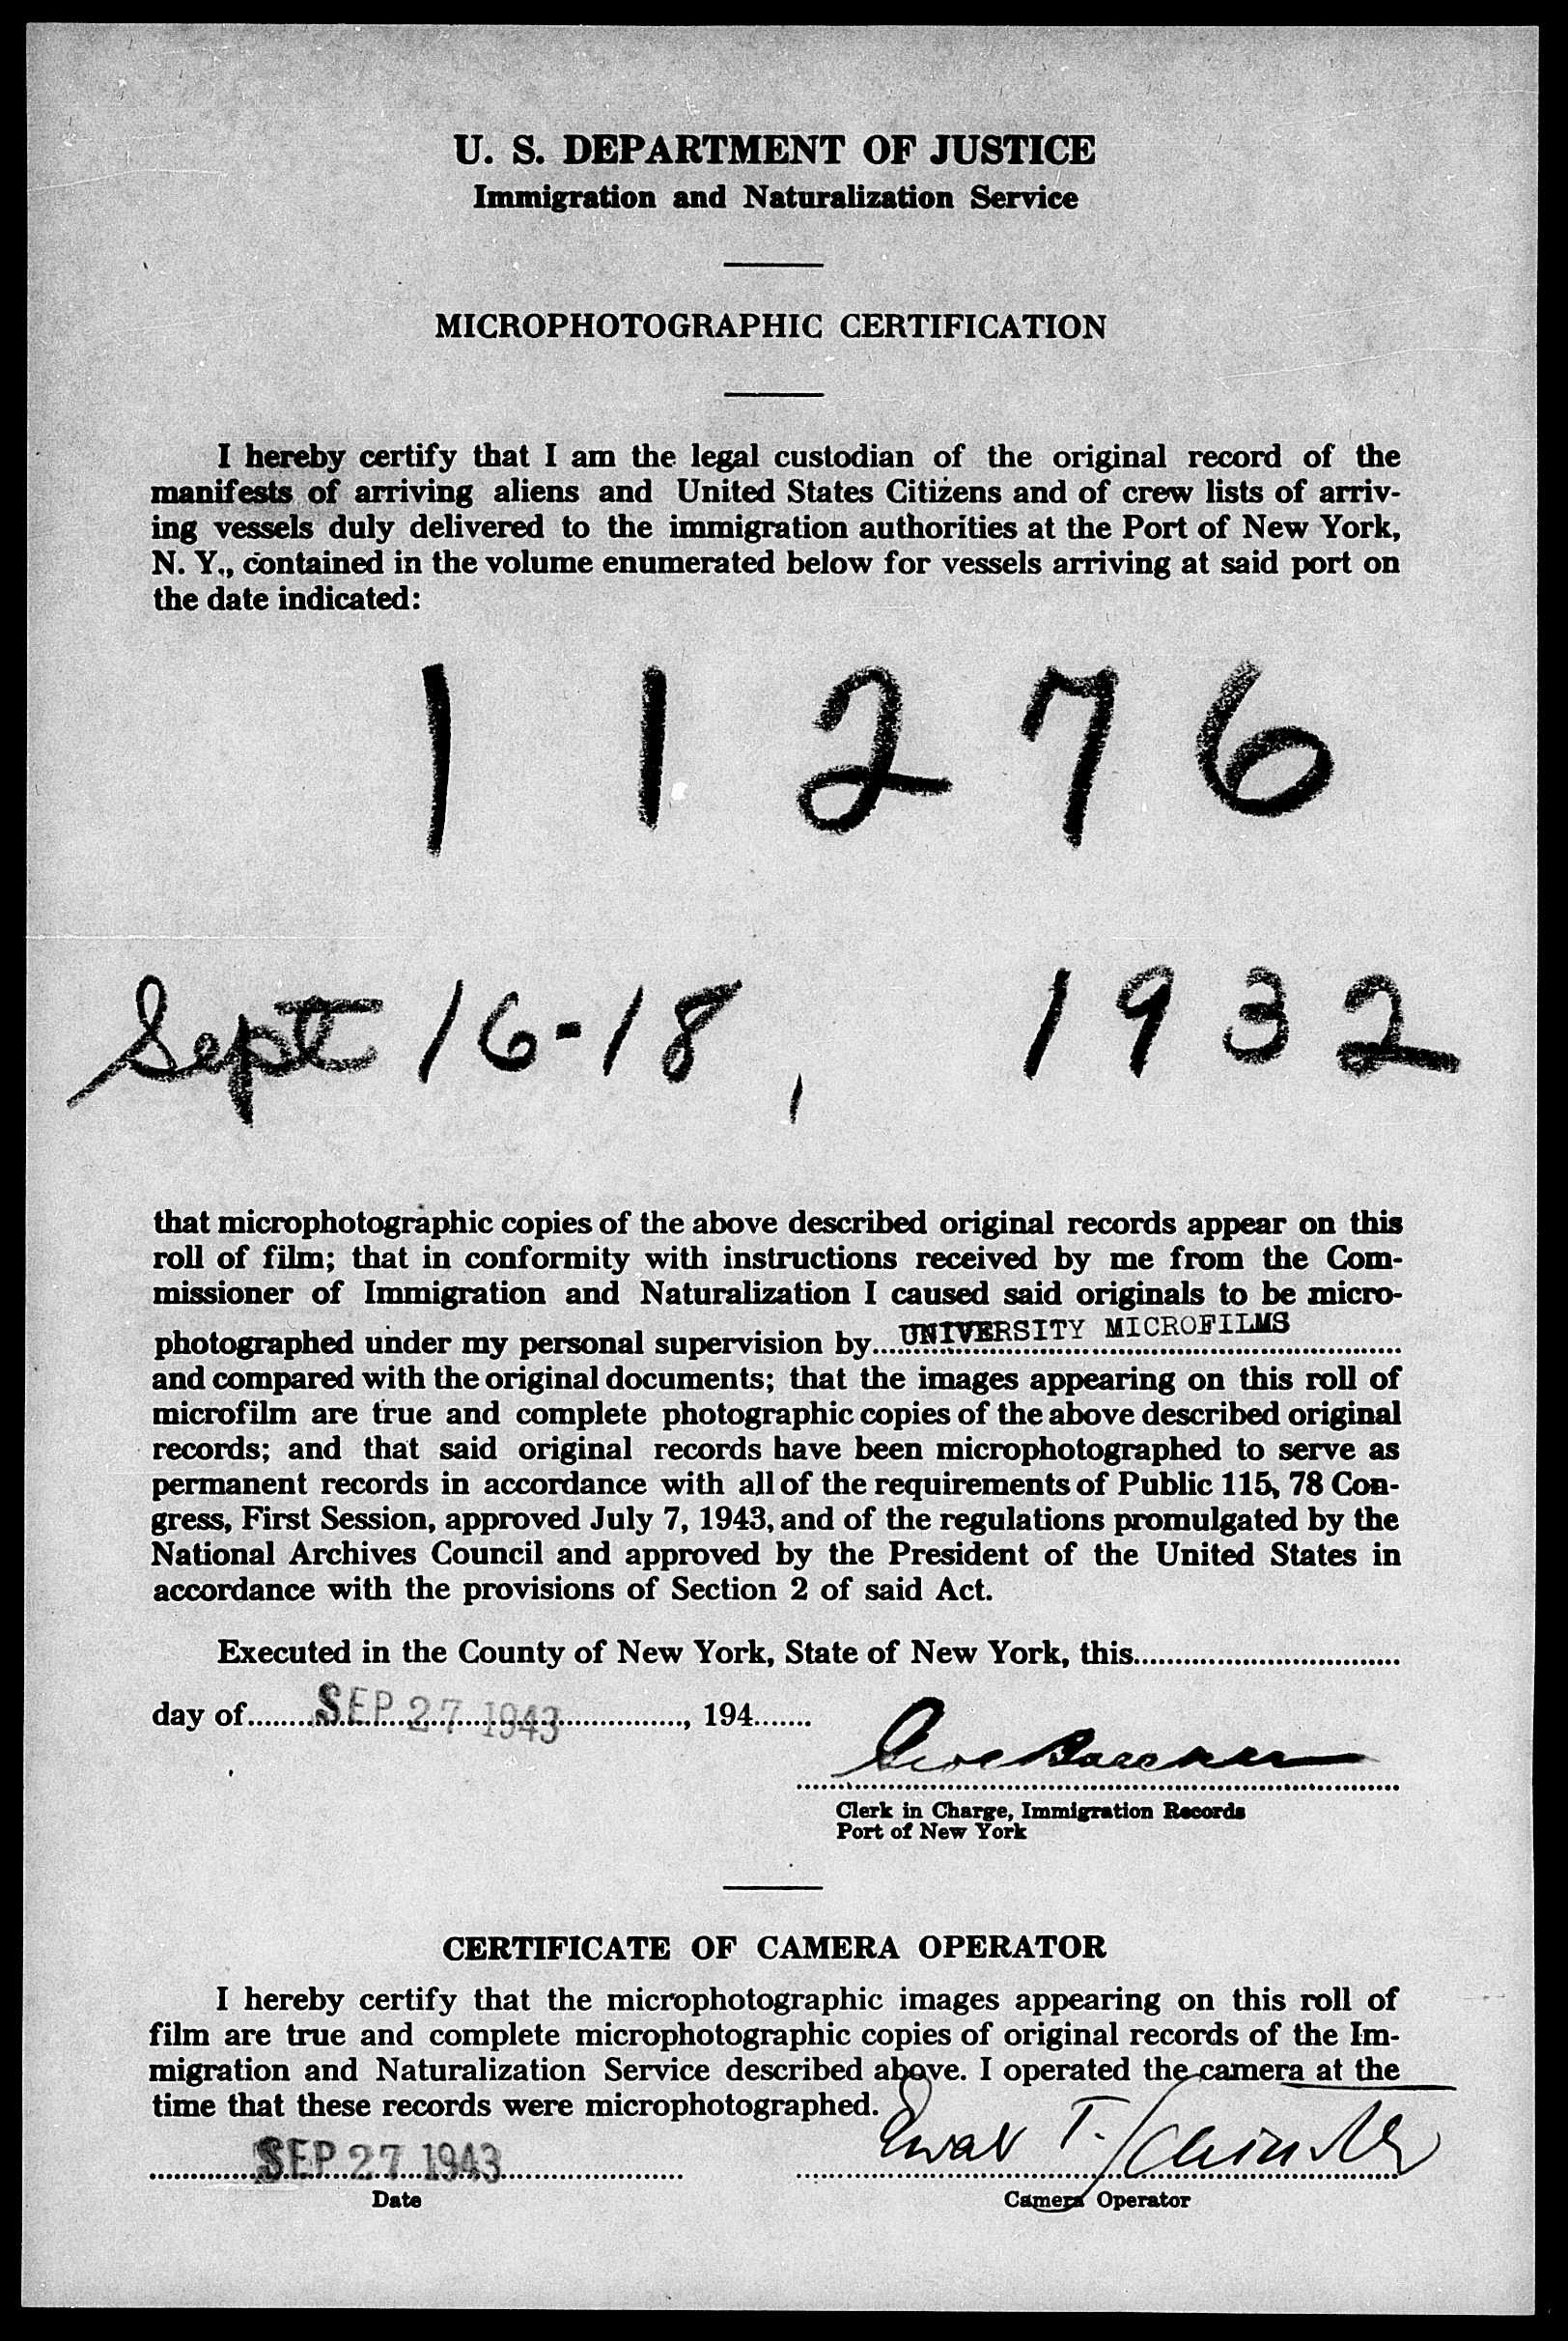 U. S. DEPARTMENT OF JUSTICE
Immigration and Naturalization Service
MICROPHOTOGRAPHIC CERTIFICATION
I hereby certify that I am the legal custodian of the original record of the
manifests of arriving aliens and United States Citizens and of crew lists of arriv-
ing vessels duly delivered to the immigration authorities at the Port of New York,
N. Y., contained in the volume enumerated below for vessels arriving at said port on
the date indicated:
1 1 2 7 6
Sept 16-18, 1932
that microphotographic copies of the above described original records appear on this
roll of film; that in conformity with instructions received by me from the Com-
missioner of Immigration and Naturalization I caused said originals to be micro-
photographed under my personal supervision by UNIVERSITY MICROFILMS
and compared with the original documents; that the images appearing on this roll of
microfilm are true and complete photographic copies of the above described original
records; and that said original records have been microphotographed to serve as
permanent records in accordance with all of the requirements of Public 115, 78 Con-
gress, First Session, approved July 7, 1943, and of the regulations promulgated by the
National Archives Council and approved by the President of the United States in
accordance with the provisions of Section 2 of said Act.
Executed in the County of New York, State of New York, this
day of SEP 27 1943, 194
Clerk in Charge, Immigration Records
Port of New York
CERTIFICATE OF CAMERA OPERATOR
I hereby certify that the microphotographic images appearing on this roll of
film are true and complete microphotographic copies of original records of the Im-
migration and Naturalization Service described above. I operated the camera at the
time that these records were microphotographed.
SEP 27 1943
T.
Date
Camera Operator